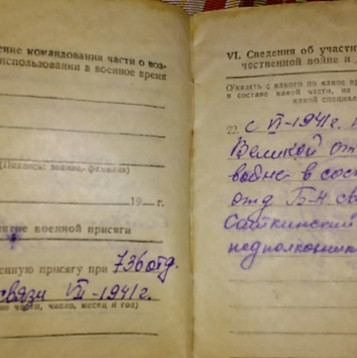 ение командования части о воз-
использования в военное время
(Подпись: звание, фамилия)
19 — г.
ятие военной присяги
енную присягу при 736 отд.
связи VII-1941 г.
части, число, месяц и год)
VI. Сведения об участи
чественной войне и д
(Указать с какого по какое вр
в составе какой части, на
какой специал
22. с VI-1941 г.
Великой От
войне в сос
отд Б-н св
Саткинский
подполковник